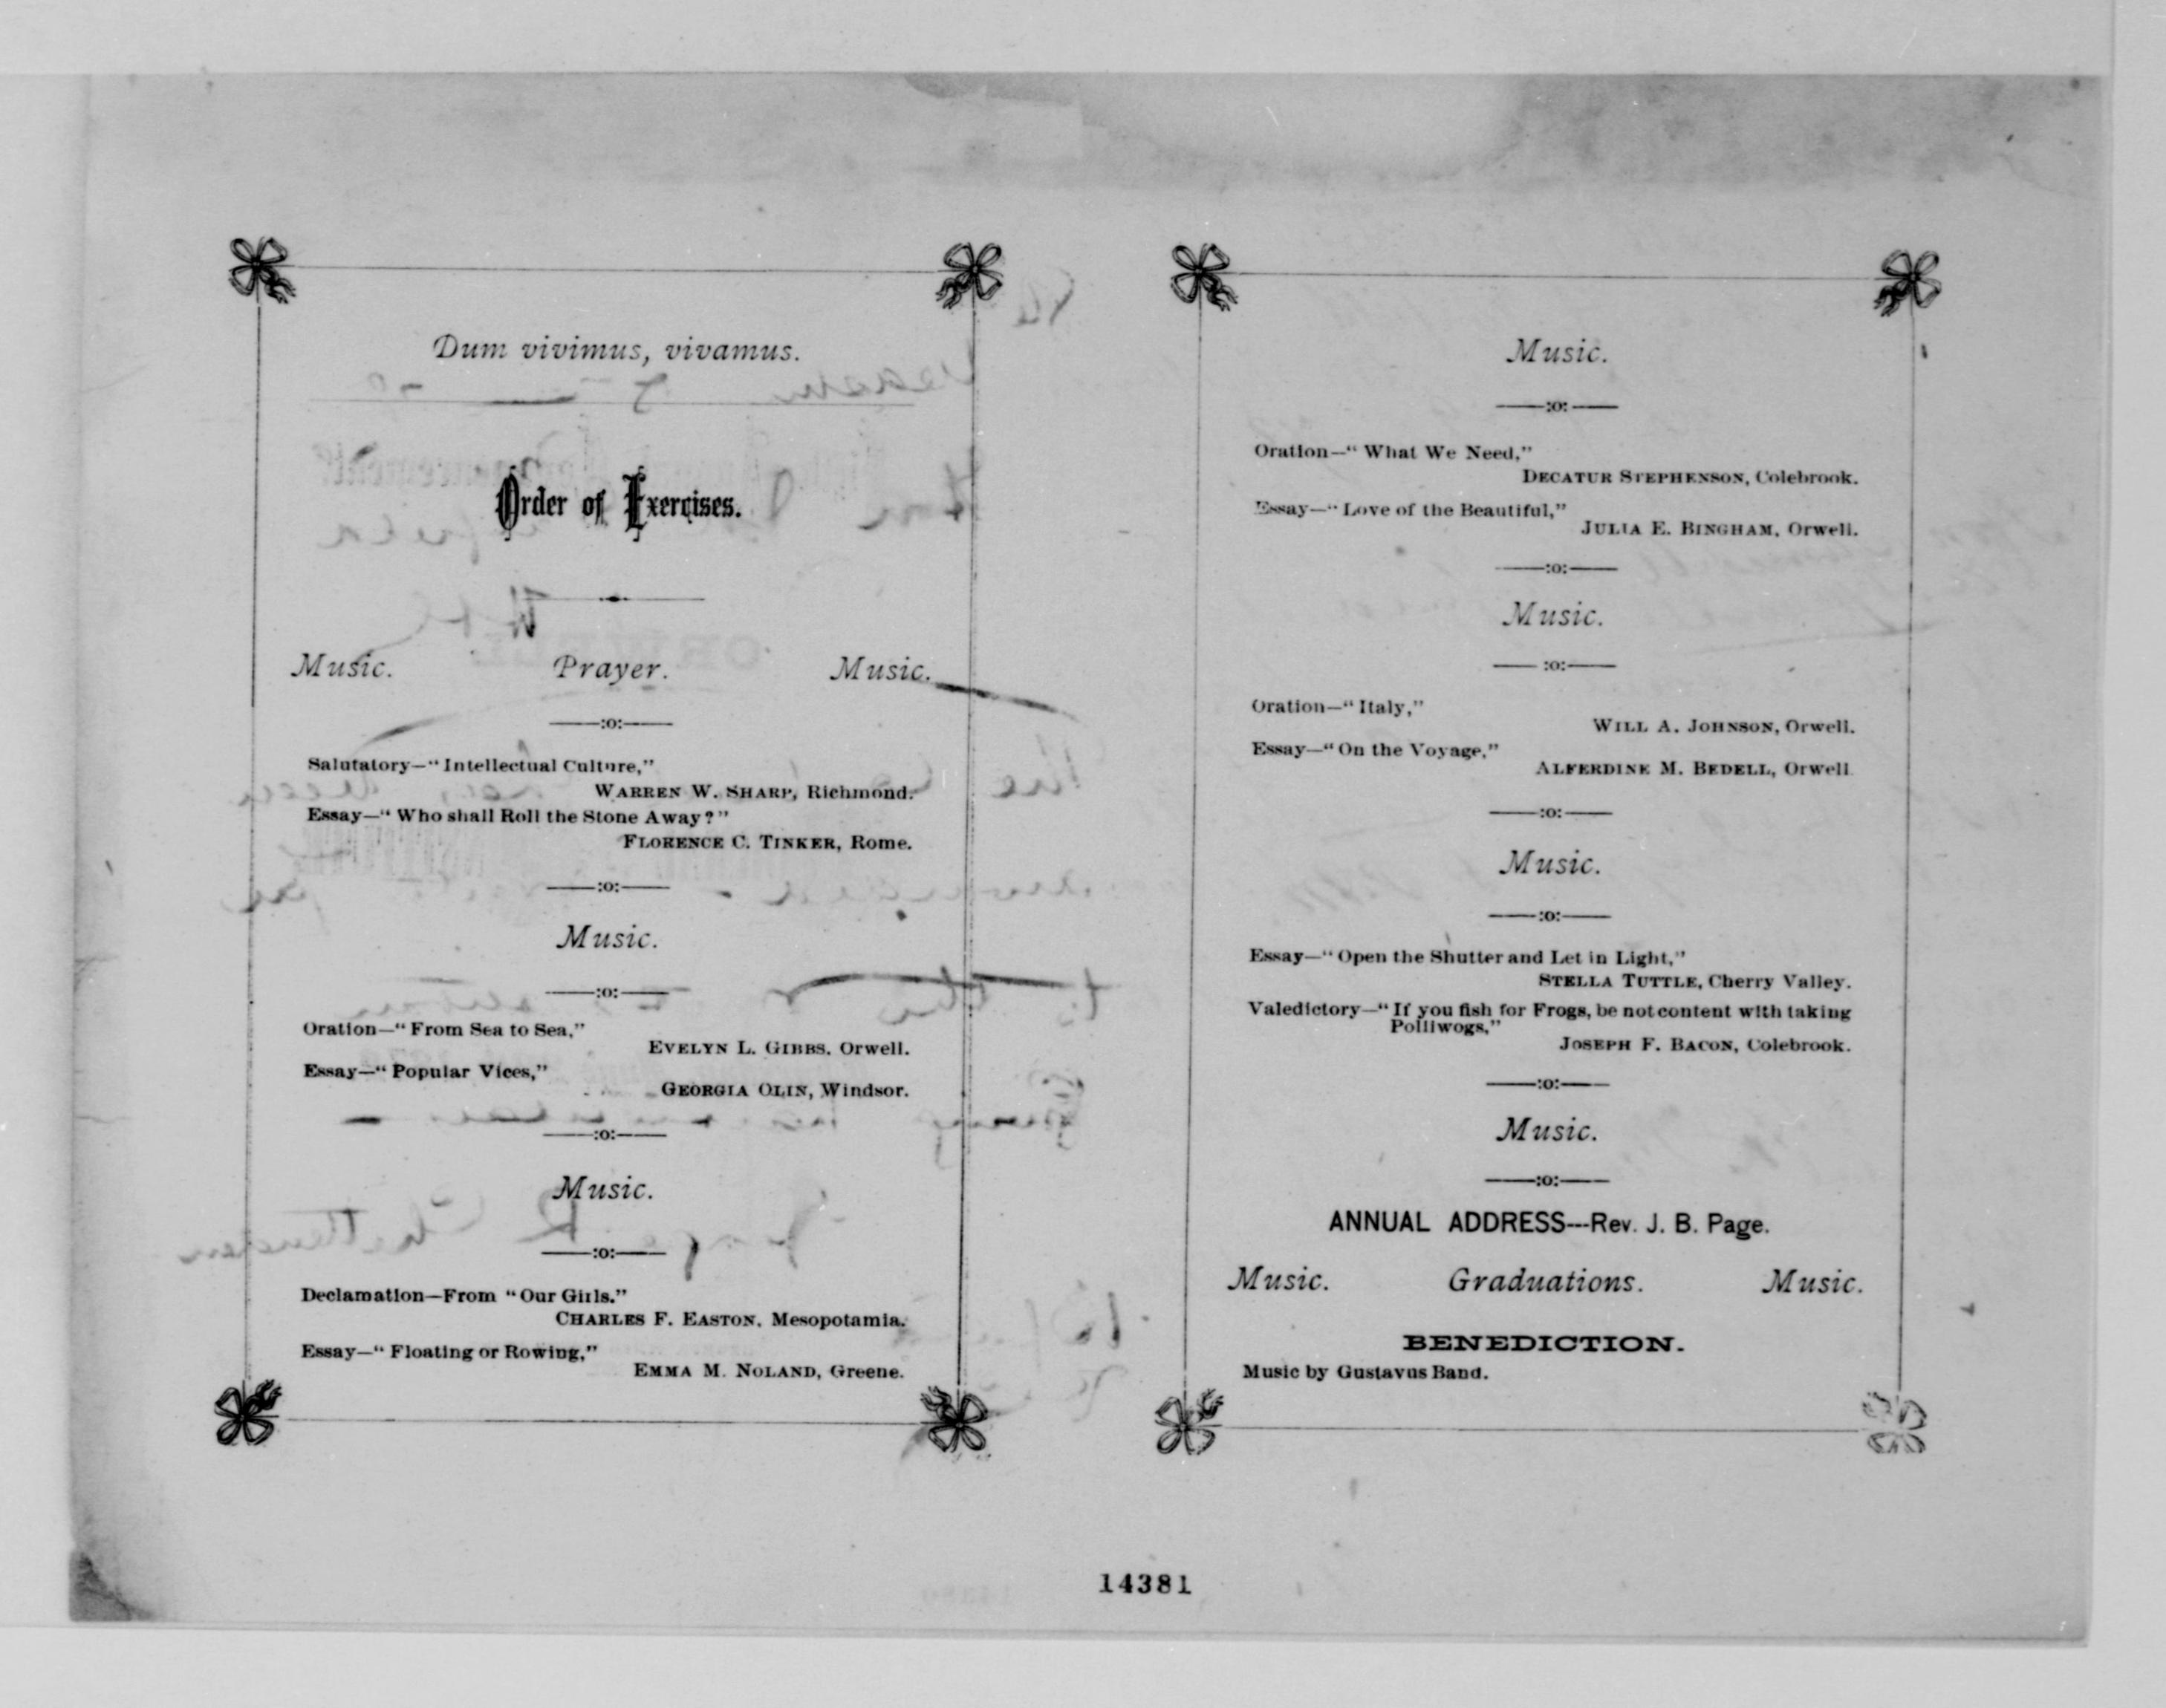 Dum vivimus, vivamus.
Order of Exercises.
Music. Prayer. Music.
—:o:—
Salutatory—“Intellectual Culture,”
WARREN W. SHARP, Richmond.
Essay—“Who shall Roll the Stone Away?”
FLORENCE C. TINKER, Rome.
—:o:—
Music.
—:o:—
Oration—“From Sea to Sea,”
EVELYN L. GIBBS, Orwell.
Essay—“Popular Vices,”
GEORGIA OLIN, Windsor.
—:o:—
Music.
—:o:—
Declamation—From “Our Girls.”
CHARLES F. EASTON, Mesopotamia.
Essay—“Floating or Rowing,”
EMMA M. NOLAND, Greene.
Music.
—:o:—
Oration—“What We Need,”
DECATUR STEPHENSON, Colebrook.
Essay—“Love of the Beautiful,”
JULIA E. BINGHAM, Orwell.
—:o:—
Music.
—:o:—
Oration—“Italy,”
WILL A. JOHNSON, Orwell.
Essay—“On the Voyage,”
ALFERDINE M. BEDELL, Orwell
—:o:—
Music.
—:o:—
Essay—“Open the Shutter and Let in Light,”
STELLA TUTTLE, Cherry Valley.
Valedictory—“If you fish for Frogs, be not content with taking
Polliwogs,”
JOSEPH F. BACON, Colebrook.
—:o:—
Music.
—:o:—
ANNUAL ADDRESS---Rev. J. B. Page.
Music. Graduations. Music.
BENEDICTION.
Music by Gustavus Band.
14381